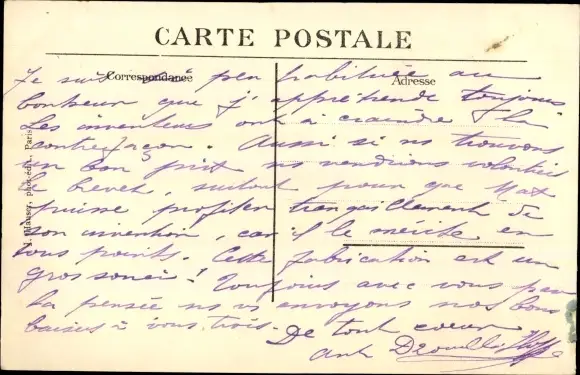 CARTE POSTALE
Correspondance
Adresse
Je suis si peu habituée au
bonheur que j'appréhende toujours.
Les inventeurs ont à craindre la
contrefaçon. Aussi si ns trouvons
un bon prix ns vendrions volontiers
le brevet, surtout pour que Max
puisse profiter tranquillement de
son invention, car il le mérite en
tous points. Cette fabrication est un
gros souci! Toujours avec vous par
la pensée ns vs envoyons nos bons
baisers à vous trois.
De tout cœur
phot.-édit., Paris